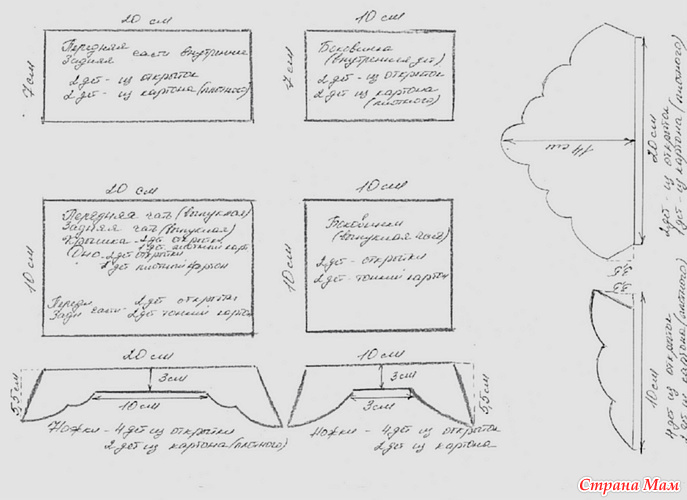 20 см
7 см
Передняя
Задняя части внутренние
2 дет - из открыток
2 дет - из картона (плотного)
10 см
7 см
Боковинка
(внутренняя дет)
2 дет - из открыток
2 дет из картона
(плотного)
14 см
20 см
2 дет - из открыток
1 дет - из картона (плотного)
20 см
10 см
Передняя часть (выпуклая)
Задняя часть (выпуклая)
Крышка - 2 дет открытки
1 дет плотный карт
Дно - 2 дет открытки
1 дет плотный картон
Передн
Задн части - 2 дет открытки
2 дет тонкий картон
10 см
10 см
Боковинки
(выпуклая часть)
2 дет - открытки
2 дет - тонкий картон
10 см
4 дет из открыток
2 дет из картона (плотного)
20 см
5,5 см
3 см
10 см
Ножки - 4 дет из открытки
2 дет из картона (плотного)
10 см
3 см
3 см
5,5 см
Ножки - 4 дет из открыток
2 дет из картона
Страна Мам